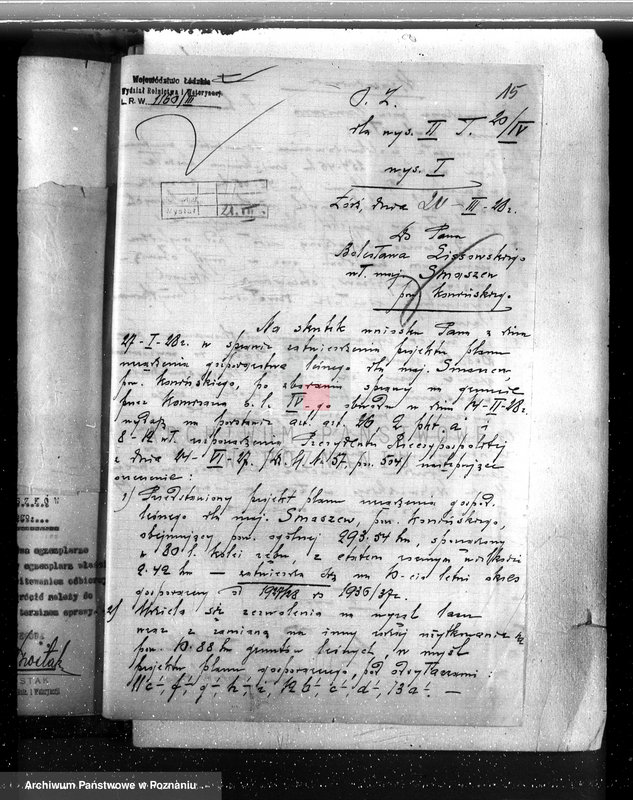 Województwo Łódzkie
Wydział Rolnictwa i Weterynarji
L. R. W. 1160/III
15
dla wys. II T. 20/IV
wys. I
21. III.
Łódź, dnia 21-III-28r.
Do Pana
Bolesława
wł. maj. Smaszew
pow. Konińskiego.
Na skutek wniosku Pana z dnia
27-I-28r. w sprawie zatwierdzenia projektu planu
urządzenia gospodarstwa leśnego dla maj. Smaszew,
pow. Konińskiego, po zbadaniu sprawy na gruncie
przez Komisarza o. l. IV-go obwodu w dniu 14-II-28r.
wydaję na podstawie art. art. 26, 2 pkt. a i
8-12 wł. rozporządzenia Prezydenta Rzeczypospolitej
z dnia 24-VI-27. /Dz. U. Nr. 57. poz. 504/ następujące
orzeczenie:
1) Przedstawiony projekt planu urządzenia gospod.
leśnego dla maj. Smaszew, pow. Konińskiego,
obejmujący pow. ogólnej 293.54 ha, sporządzony
w 80 l. kolei rębu z etatem rocznym wielkości
2.42 ha — zatwierdza się na 10-cio letni okres
gospodarczy od 1927/28 do 1936/37r.
2) Udziela się zezwolenia na wyrąb lasu
wraz z zamianą na inny rodzaj użytkowania
pow. 10.88 ha gruntów leśnych, w myśl
projektu planu gospodarczego, pod oddziałami:
11 c¹, f¹, g¹, h¹, i, 12 b¹, c¹, d¹, 13 a¹. —
egzemplarz
terminem sprawy.
Archiwum Państwowe w Poznaniu